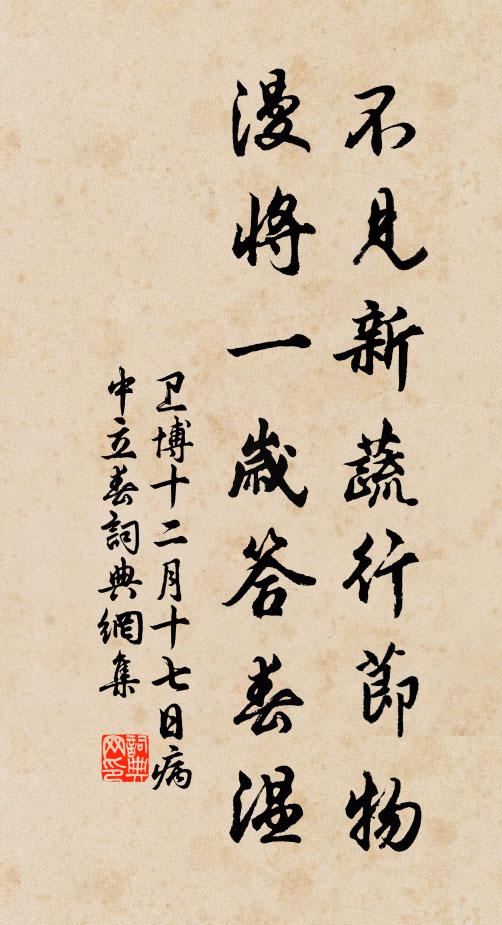 不見新蔬行節物
漫將一歲答春温
卫博十二月十七日病
中立春詞典網集
詞典网印